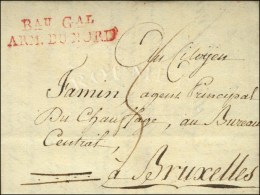 BAU GAL
ARM. DU NORD
Au Citoyen
Famin agent Principal
Du Chauffage, au Bureau
Central,
à Bruxelles